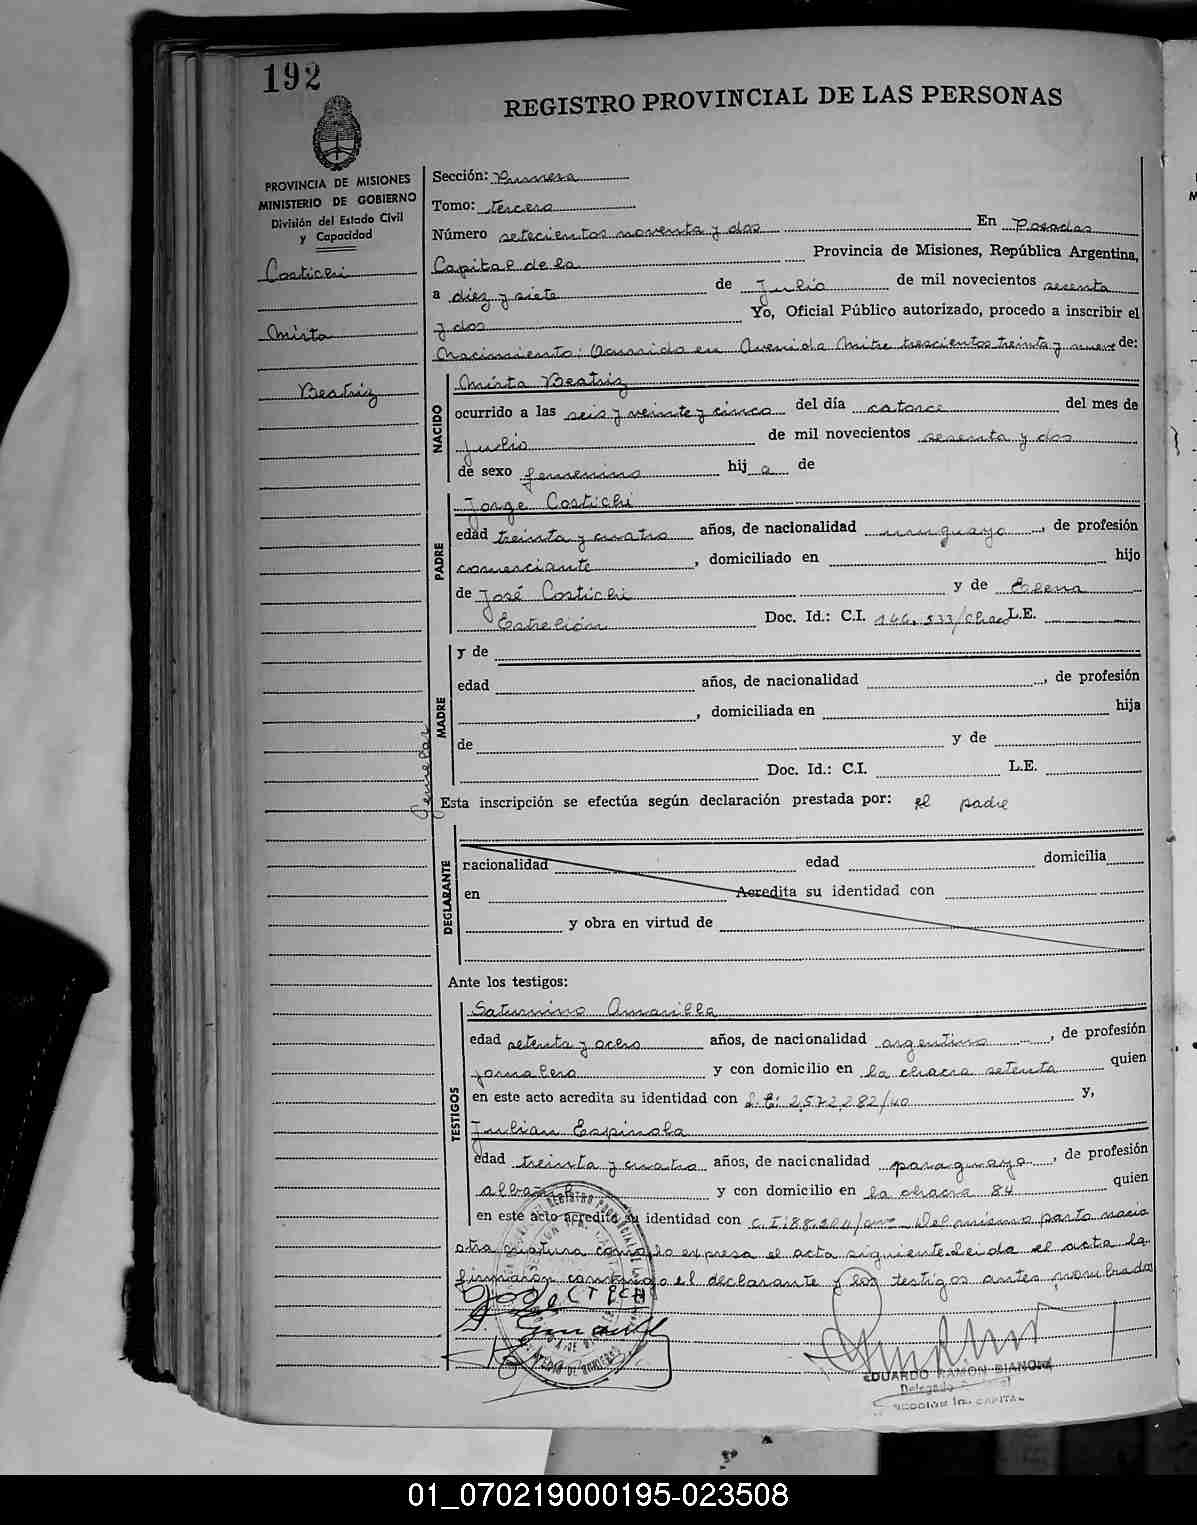 192
REGISTRO PROVINCIAL DE LAS PERSONAS
PROVINCIA DE MISIONES
MINISTERIO DE GOBIERNO
División del Estado Civil
y Capacidad
Costichi
Mirta
Beatriz
Sección: Primera
Tomo: tercero
Número setecientos noventa y dos En Posadas
Capital de la Provincia de Misiones, República Argentina,
a diez y siete de Julio de mil novecientos sesenta
y dos Yo, Oficial Público autorizado, procedo a inscribir el
Nacimiento: Ocurrido en Avenida Mitre trescientos treinta y nueve de:
NACIDO
Mirta Beatriz
ocurrido a las seis y veinte y cinco del día catorce del mes de
Julio de mil novecientos sesenta y dos
de sexo femenino hij a de
PADRE
Jorge Costichi
edad treinta y cuatro años, de nacionalidad uruguayo, de profesión
comerciante, domiciliado en hijo
de José Costichi y de Elena
Estelión Doc. Id.: C.I. 146.533/Chaco L.E.
MADRE
y de
edad años, de nacionalidad , de profesión
, domiciliada en hija
de y de
Doc. Id.: C.I. L.E.
Gemelar
Esta inscripción se efectúa según declaración prestada por: el padre
DECLARANTE
nacionalidad edad domicilia
en Acredita su identidad con
y obra en virtud de
Ante los testigos:
TESTIGOS
Saturnino Amarilla
edad setenta y ocho años, de nacionalidad argentino, de profesión
jornalero y con domicilio en la chacra setenta quien
en este acto acredita su identidad con L.E: 2,572,282/40 y,
Julian Espinola
edad treinta y cuatro años, de nacionalidad paraguayo, de profesión
albañil y con domicilio en la chacra 84 quien
en este acto acredita su identidad con C.I: 88.204/ Del mismo parto nació
otra criatura como lo expresa el acta siguiente. Leida el acta la
firmaron conmigo el declarante y los testigos antes nombrados
EDUARDO RAMON BIANCHI
Delegado
SECCION 1ra. CAPITAL
01_070219000195-023508